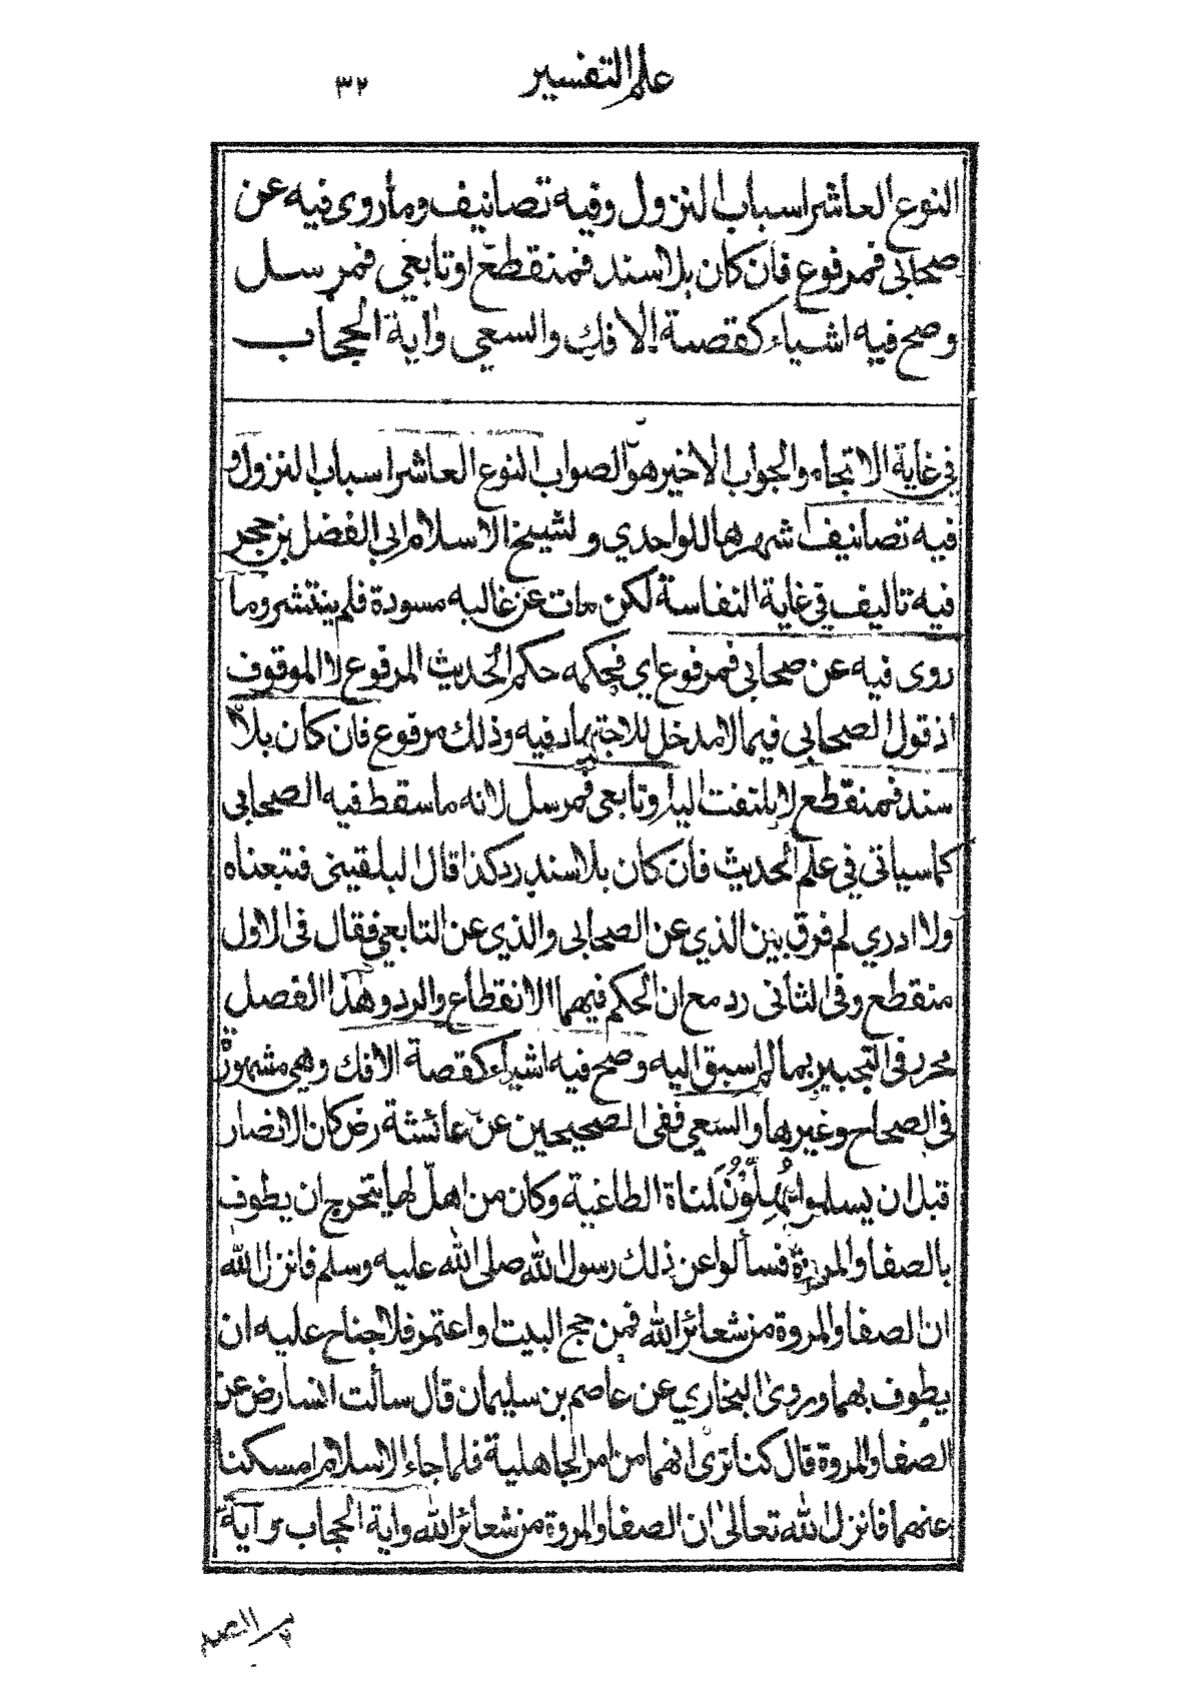 علم التفسير
٣٢
النوع العاشر اسباب النزول وفيه تصانيف وما روى فيه عن
صحابي فمرفوع فان كان بلا سند فمنقطع او تابعي فمرسل
وصح فيه اشياء كقصة الافك والسعي واٰية الحجاب
في غاية الاتجاه والجواب الاخير هو الصواب النوع العاشر اسباب النزول و
فيه تصانيف اشهرها للواحدي ولشيخ الاسلام ابي الفضل بن حجر
فيه تاليف في غاية النفاسة لكن مات عن غالبه مسودة فلم ينتشر وما
روى فيه عن صحابي فمرفوع اي فحكمه حكم الحديث المرفوع لا الموقوف
اذ قول الصحابي فيما لا مدخل للاجتهاد فيه وذلك مرفوع فان كان بلا
سند فمنقطع لا يلتفت اليه او تابعي فمرسل لانه ما سقط فيه الصحابي
كما سياتي في علم الحديث فان كان بلا سند رد كذا قال البلقيني فتبعناه
ولا ادري لم فرق بين الذي عن الصحابي والذي عن التابعي فقال في الاول
منقطع وفي الثاني رد مع ان الحكم فيهما الانقطاع والرد وهذا الفصل
محرر في التحبير بما لم اسبق اليه وصح فيه اشياء كقصة الافك وهي مشهورة
في الصحاح وغيرها والسعي ففي الصحيحين عن عائشة رض كان الانصار
قبل ان يسلموا يُهِلُّوْنَ لمناة الطاغية وكان من اهلّ لها يتحرج ان يطوف
بالصفا والمروة فسألوا عن ذلك رسول الله صلى الله عليه وسلم فانزل الله
ان الصفا والمروة من شعائر الله فمن حج البيت او اعتمر فلا جناح عليه ان
يطوف بهما وروى البخاري عن عاصم بن سليمان قال سألت انسا رض عن
الصفا والمروة قال كنا نرى انهما من امر الجاهلية فلما جاء الاسلام امسكنا
عنهما فانزل الله تعالى ان الصفا والمروة من شعائر الله واية الحجاب و آية